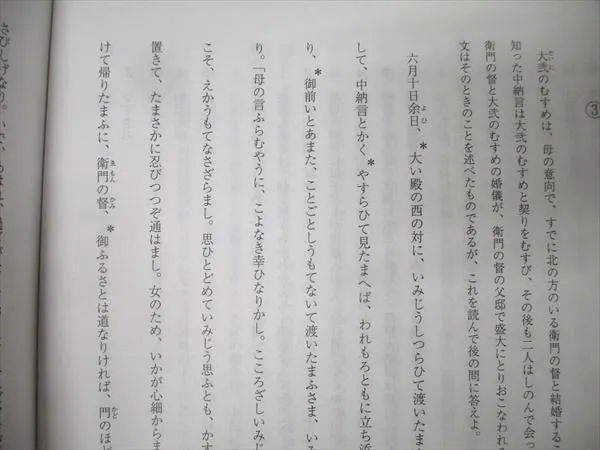 ③
大弐のむすめは、母の意向で、すでに北の方のいる衛門の督と結婚するこ
知った中納言は大弐のむすめと契りをむすび、その後も二人はしのんで会っ
衛門の督と大弐のむすめの婚儀が、衛門の督の父邸で盛大にとりおこなわれ
文はそのときのことを述べたものであるが、これを読んで後の問に答えよ。
六月十日余日、＊大い殿の西の対に、いみじうしつらひて渡いたま
して、中納言とかく＊やすらひて見たまへば、われもろともに立ち添
り、＊御前いとあまた、ことごとしうもてないて渡いたまふさま、いみ
り。「母の言ふらむやうに、こよなき幸ひなりかし。こころざしいみじ
こそ、えかうもてなさざらまし。思ひとどめていみじう思ふとも、かす
置きて、たまさかに忍びつつぞ通はまし。女のため、いかが心細からま
けて帰りたまふに、衛門の督、＊御ふるさとは道なりければ、門のほど
さびしげなり。